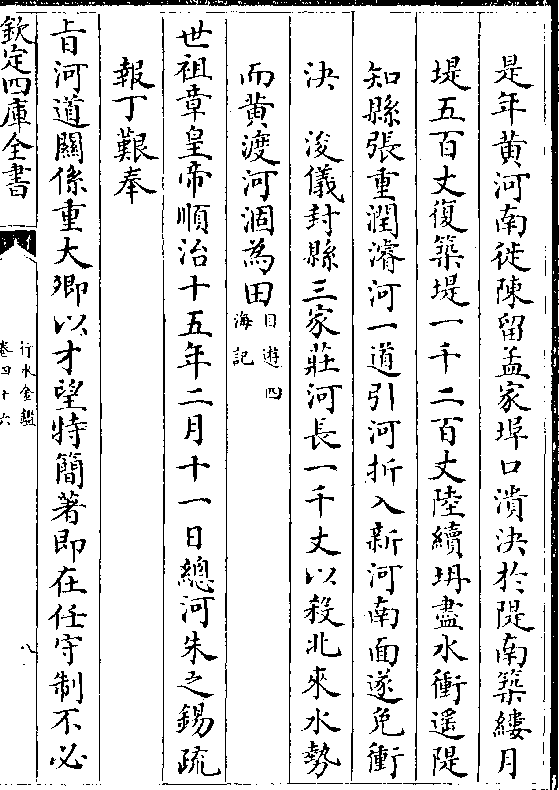 是年黄河南徙陳留孟家埠口潰決於隄南築縷月
堤五百丈復築堤一千二百丈陸續坍盡水衝遥隄
知縣張重潤濬河一道引河折入新河南面遂免衝
決　浚儀封縣三家莊河長一千丈以殺北來水勢
而黄渡河涸為田目遊四海記
世祖章皇帝順治十五年二月十一日總河朱之錫疏
報丁艱奉
㫖河道關係重大卿以才望特簡著即在任守制不必
欽定四庫全書
行水金鑑
卷四十六
八